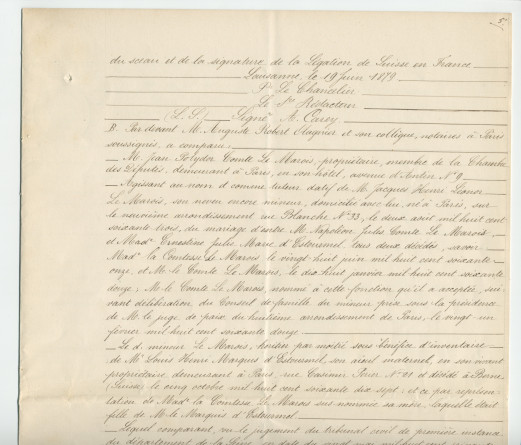 du sceau et de la signature de la Légation de Suisse en France
Lausanne, le 19 Juin 1879
Pr Le Chancelier
Le Sre Rédacteur
(L. S.) Signé A.
B. Par devant M. Auguste Robert et son collègue, notaires à Paris
soussignés, a comparu.
M. Jean Polydor Comte Le Marois, propriétaire, membre de la Chambre
des Députés, demeurant à Paris, en son hôtel, avenue d'Antin No 9
Agissant au nom et comme tuteur datif de M. Jacques Henri Léonor
Le Marois, son neveu encore mineur, domicilié avec lui, né à Paris, sur
le neuvième arrondissement rue Blanche No 33, le deux août mil huit cent
soixante trois, du mariage d'entre M. Napoléon Jules Comte Le Marois
et Made Ernestine Julie Marie d'Estourmel tous deux décédés, savoir
Made la Comtesse Le Marois le vingt huit juin mil huit cent soixante
onze, et M. le Comte Le Marois, le dix huit janvier mil huit cent soixante
douze; M. le Comte Le Marois, nommé à cette fonction qu'il a acceptée, sui-
vant délibération du Conseil de famille du mineur prise sous la présidence
de M. le juge de paix du huitième arrondissement de Paris, le vingt un
février mil huit cent soixante douze
Le d. mineur Le Marois, héritier par moitié sous bénéfice d'inventaire
de Mr Louis Henri Marquis d'Estourmel, son aïeul maternel, en son vivant
propriétaire, demeurant à Paris, rue Casimir Perier No 21 et décédé à Berne
(Suisse) le cinq octobre mil huit cent soixante dix sept; et ce par représen-
tation de Made la Comtesse Le Marois sus nommée sa mère, laquelle était
fille de M. le Marquis d'Estourmel
Lequel comparant, vu le jugement du tribunal civil de première instance
du département de la Seine en date du vingt mai mil huit cent